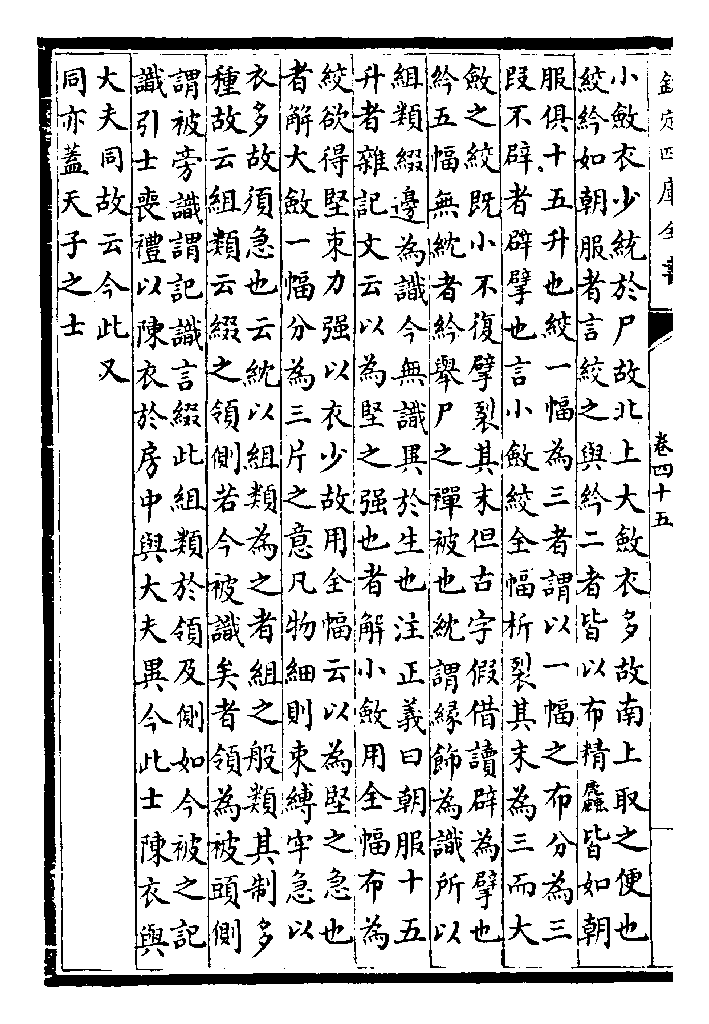 欽定四庫全書
卷四十五
小斂衣少統於尸故北上大斂衣多故南上取之便也
絞紟如朝服者言絞之與紟二者皆以布精麤皆如朝
服俱十五升也絞一幅為三者謂以一幅之布分為三
段不辟者辟擘也言小斂絞全幅析裂其末為三而大
斂之絞既小不復擘裂其末但古字假借讀辟為擘也
紟五幅無紞者紟舉尸之襌被也紞謂緣飾為識所以
組類綴邊為識今無識異於生也注正義曰朝服十五
升者雜記文云以為堅之强也者解小斂用全幅布為
絞欲得堅束力强以衣少故用全幅云以為堅之急也
者解大斂一幅分為三片之意凡物細則束縛牢急以
衣多故須急也云紞以組類為之者組之般類其制多
種故云組類云綴之領側若今被識矣者領為被頭側
謂被旁識謂記識言綴此組類於領及側如今被之記
識引士喪禮以陳衣於房中與大夫異今此士陳衣與
大夫同故云今此又
同亦蓋天子之士